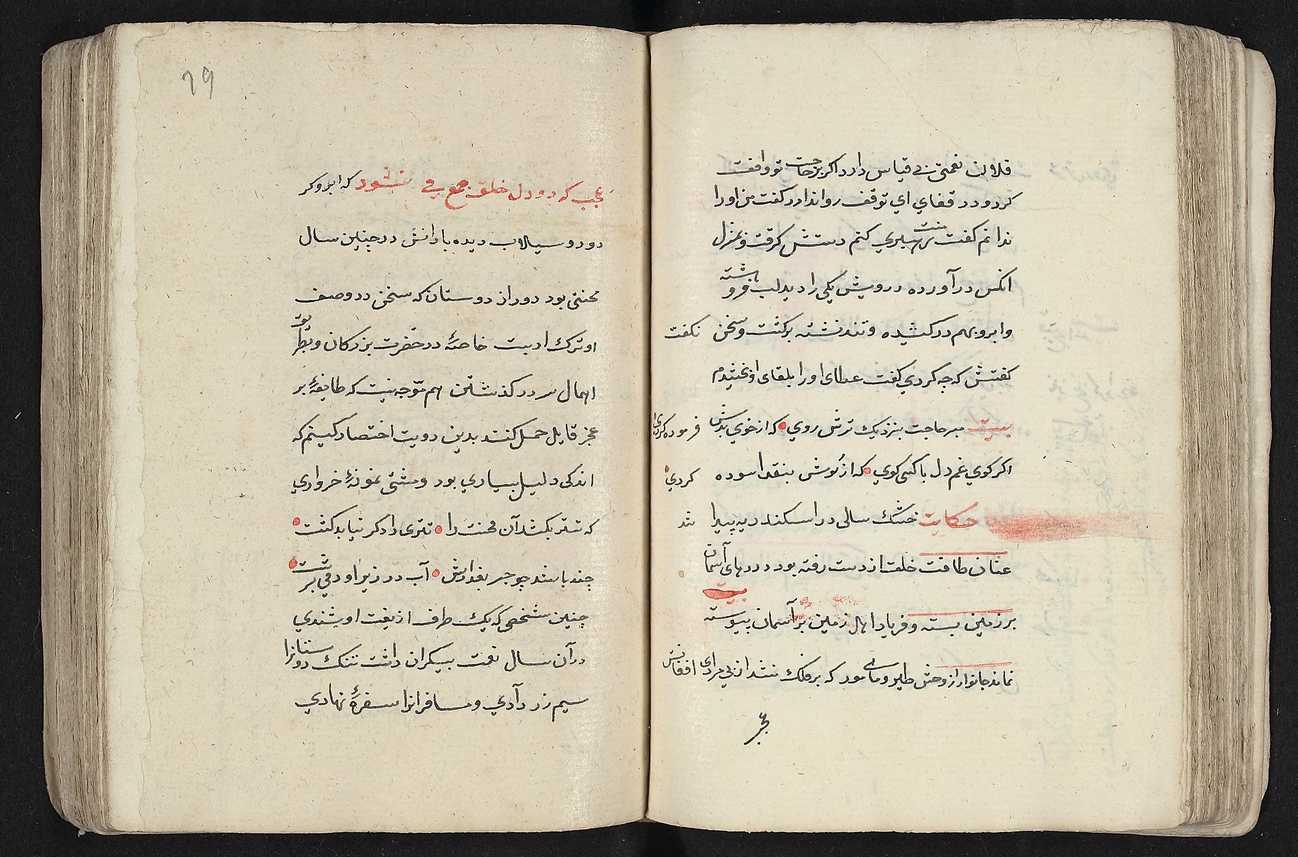 فلان نعمتی بی قیاس دارد اکر بر حاجت تو واقف
کردد در قضای ای توقف روا ندارد کفت من او را
ندانم کفت منت رهبری کنم دستش کرفت و بمنزل
انکس در آورده درویش یکی را دید لب فروهشته
و ابرو بهم در کشیده و تند نشسته برکشت و سخن نکفت
کفتش که چه کردی کفت عطای او را بلقای او بخشیدم
بیت مبر حاجت بنزدیک ترش روی که از خوی بدش فرسوده کردی
اکر کوی غم دل با کسی کوی که از رویش بنقد آسوده کردی
حکایت خشک سالی در اسکندریه پیدا شد
عنان طاقت خلق از دست رفته بود درهای آسمان
بر زمین بسته و فریاد اهل زمین بر آسمان پیوسته بیت
نماند جانور از وحش طیر و ماهی مور که بر فلک نشد از بی مرادی افغانش
عجب
79
عجب که دود دل خلق جمع می نشود که ابر و کر
دود و سیلاب دیده بارانش در چنین سال
مخنثی بود دور از دوستان که سخن در وصف
او ترک ادبست خاصهٔ در حضرت بزرکان و بطریق
اهمال سر در کذشتن هم توجه نیست که طایفهٔ بر
عجز قایل حمل کنند بدین دو بیت اختصار کنیم که
اندکی دلیل بسیاری بود و مشتی نمونهٔ خرواری
که تتر بکشد آن مخنث را تتری را دکر نباید کشت
چند باشد چو جسر بغدادش آب در زیر او دمی بر پشت
چنین شخصی که یک طرف از نعت او شنیدی
در آن سال نعمت بیکران داشت تنک دستانرا
سیم زر دادی و مسافرانرا سفرهٔ نهادی